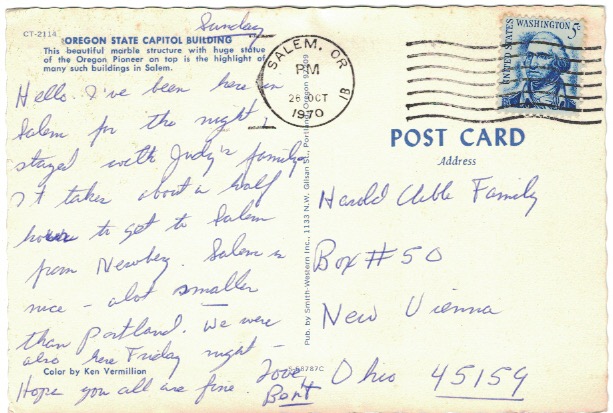 Sunday
CT-2114
OREGON STATE CAPITOL BUILDING
This beautiful marble structure with huge statue
of the Oregon Pioneer on top is the highlight of
many such buildings in Salem.
Hello. I've been here in
Salem for the night,
stayed with Judy's family.
It takes about a half
hour to get to Salem
from Newberg. Salem is
nice - alot smaller
than Portland. We were
also here Friday night -
Color by Ken Vermillion
Hope you all are fine.
Love
Bert
Pub. by Smith-Western Inc., 1133 N.W. Glisan St., Portland, Oregon 97209
SALEM, OR
PM
26 OCT
1970
UNITED STATES
WASHINGTON 5c
POST CARD
Address
Harold Family
Box #50
New Vienna
Ohio 45159